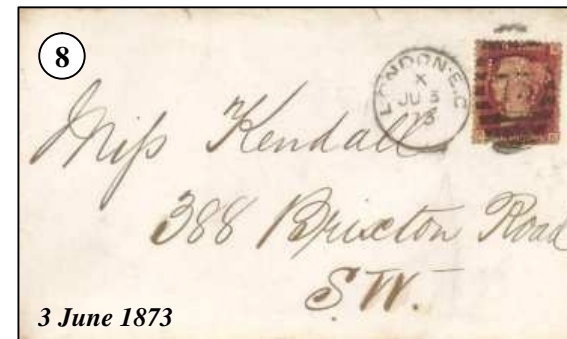 8
LONDON·E.C
X
JU 3
73
Miss Kendall
388 Brixton Road
S.W.
3 June 1873